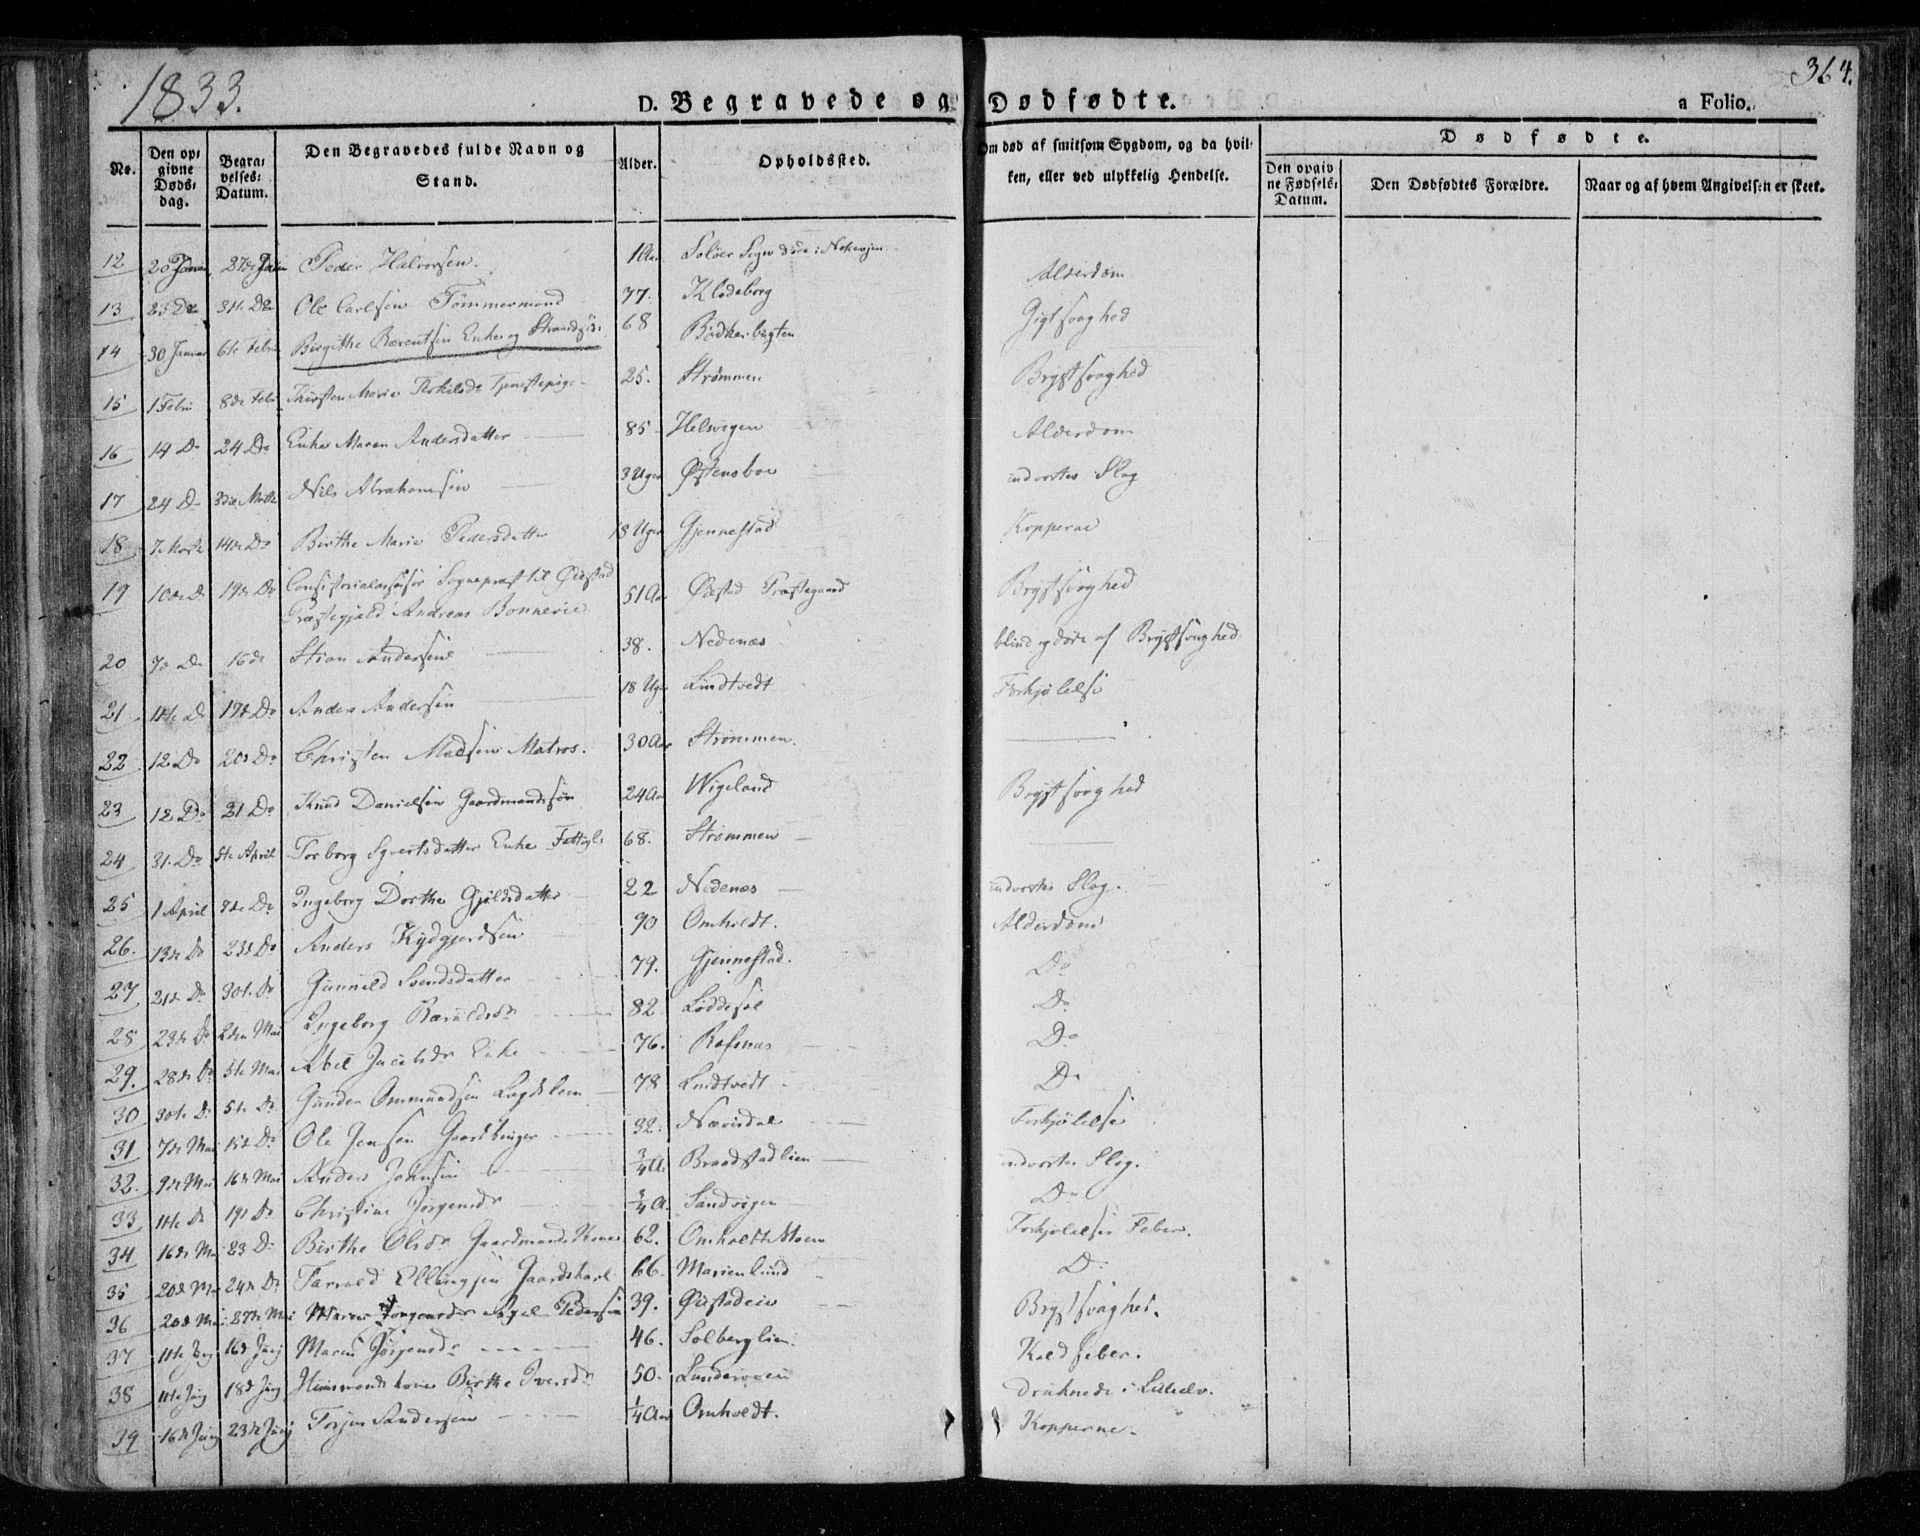 1833.
364.
D. Begravede og Dødfødte.
a Folio.
No.
Den opgivne Dødsdag.
Begravelses Datum.
Den Begravedes fulde Navn og Stand.
Alder.
Opholdssted.
Om død af smitsom Sygdom, og da hvilken, eller ved ulykkelig Hendelse.
Dødfødte.
Den opgivne Fødsels-Datum.
Den Dødfødtes Forældre.
Naar og af hvem Angivelsen er skeet.
12 20 Peder Halvorsen. 1 Aar
13 25 Do 31te Do Ole Carlsen Tømmermand 77. Klodeborg Alderdom
14 30 Januar 6te Febr Birgithe Berentsen Enke og 68 Bødkerbugten Gigtsvaghed
15 1 Febru 8de Febr Kirsten Marie Terkelsdr Tjenestepige 25. Strømmen Brystsvaghed
16 14 Do 24 Do Enke Maren Andersdatter 85 Helsvigen Alderdom
17 24 Do 3die Nils Abrahamsen 3 Uger Østensboe indvortes Slag
18 7 Marts 14de Do Birthe Marie Pedersdatter 18 Uger Gjennestad Kopperne
19 10de D 19de Do Consistorialassessor Sognepræst til Øiestad
Præstegjeld Andreas Bonnevie 51 Aar Øiestad Præstegaard Brystsvaghed
20 16de Stian Andersen 38. Nedenæs blind og døde af Brystsvaghed
21 11te D 17de Do Anders Andersen 18 Uger Lindtvedt Forkjølelse
22 12 Do 20de Do Christen Madsen Matros. 30 Aar Strømmen.
23 12 Do 21 Do Knud Danielsen Gaardmandssøn 24 Aar Wigeland Brystsvaghed
24 31. Do April Torborg Syvertsdatter Enke 68. Strømmen
25 1 April 8de Do Ingeborg Dorthe Gjeldsdatter 22 Nedenæs indvortes Slag.
26. 13de Do 23de Do Anders 90 Omholdt. Alderdom
27 21de Do 30te Do Gunnild Svendsdatter 79. Gjennestad. Do
28 23de Do Mai Ingeborg 82 Løddesøl Do
29. 28de Do Mai Abel Jacobsdr Enke 76. Rafnæs Do
30 30te D. 5te Do Gunder Ommundsen Lægdslem 78 Lindtvedt Do
31 7de Mai 15de Do Ole Jensen Gaardbruger 32. Nævisdal Forkjølelse
32. 9de Mai 16de Mai Anders Johnsen 3/4 A. Braadstadlien indvortes Slag.
33 11te D 19de D Christine Jørgensdr 3/4 A. Sandvigen Do
34 16de Mai 23 D. Birthe Olsdr Gaardmandskone 62. Omholdt Forkjølelses Feber.
35 20de Mai 24de Do Tarrald Ellingsen Gaardskarl 66. Marienlund D.
36 20de Mai 27de Mai Maren Jørgensdr Pedersen 39. Øiestadeie Brystsvaghed.
37 11te Juny 16de Juny Maren Jørgensdr 46. Solberglien. Koldfeber.
38 11te Juny 18de Juny Huusmandskone Birthe Iversdr 50. Lundevoien druknede i
39 16de Juny 23de Juny Torjus Andersen 1/4 Aar Omholdt. Kopperne.